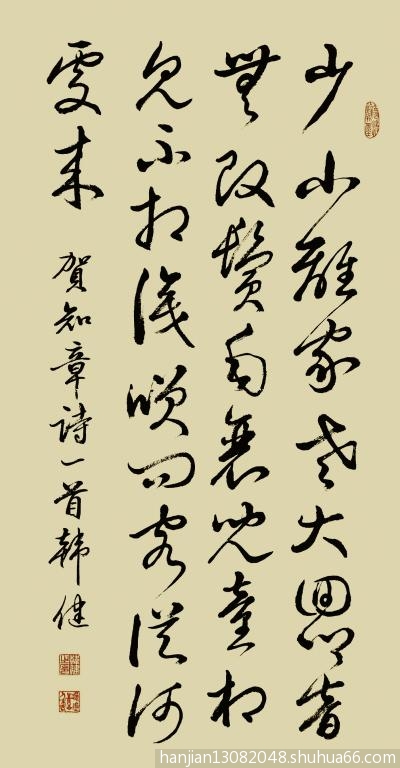 少小離家老大回鄉音
無改鬢毛衰兒童相
見不相識咲問客從何
處來
賀知章詩一首韓健
hanjian13082048.shuhua66.com